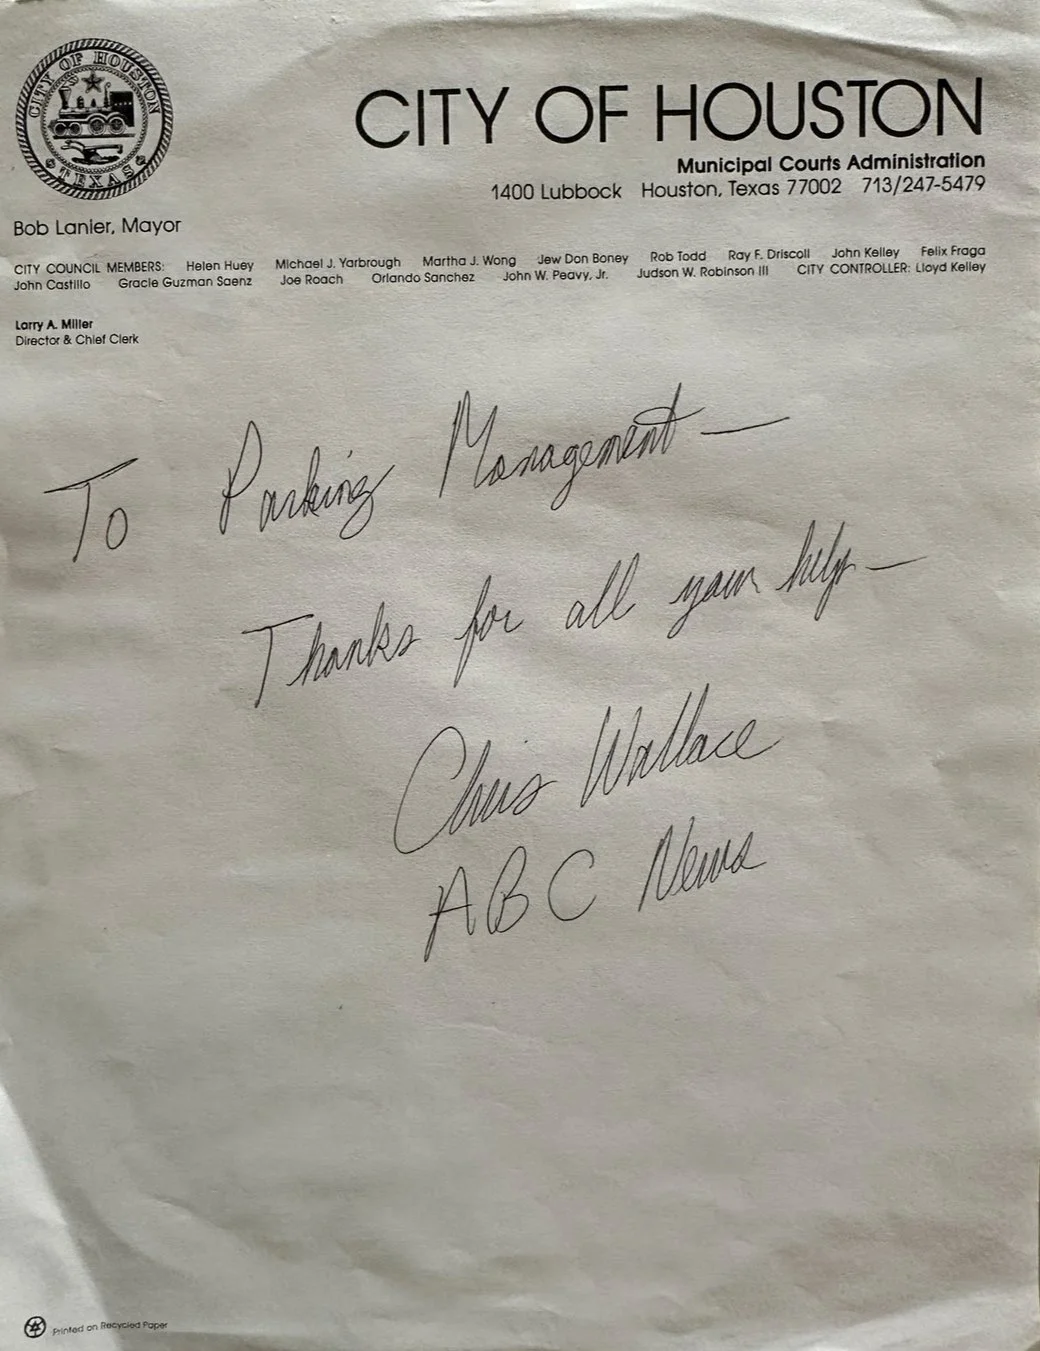 CITY OF HOUSTON
TEXAS
CITY OF HOUSTON
Municipal Courts Administration
1400 Lubbock Houston, Texas 77002 713/247-5479
Bob Lanier, Mayor
CITY COUNCIL MEMBERS: Helen Huey Michael J. Yarbrough Martha J. Wong Jew Don Boney Rob Todd Ray F. Driscoll John Kelley Felix Fraga
John Castillo Gracie Guzman Saenz Joe Roach Orlando Sanchez John W. Peavy, Jr. Judson W. Robinson III CITY CONTROLLER: Lloyd Kelley
Larry A. Miller
Director & Chief Clerk
To Parking Management —
Thanks for all your help —
Chris Wallace
ABC News
Printed on Recycled Paper